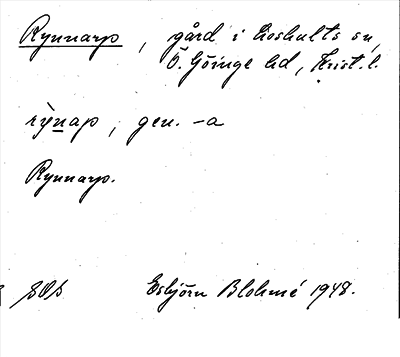 Rynnarp, gård i Loshults sn,
Ö. Göinge hd, Krist. l.
rỳnap, gen. -a
Rynnarp.
Esbjörn Blohmé 1948.